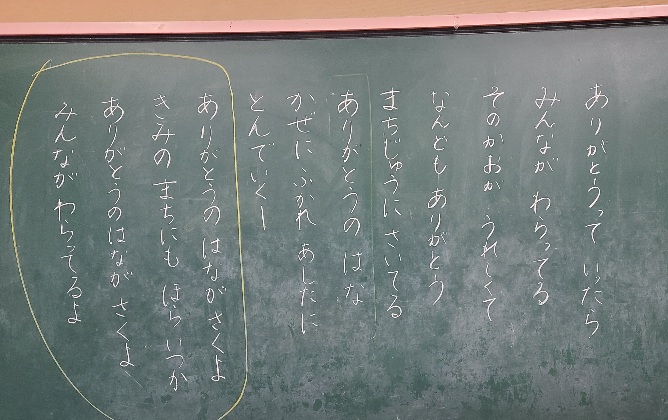 ありがとうって いったら
みんなが わらってる
そのかおが うれしくて
なんども ありがとう
まちじゅうに さいてる
ありがとうの はな
かぜに ふかれ あしたに
とんでいくー
ありがとうの はなが さくよ
きみの まちにも ほら いつか
ありがとうのはなが さくよ
みんなが わらってるよ